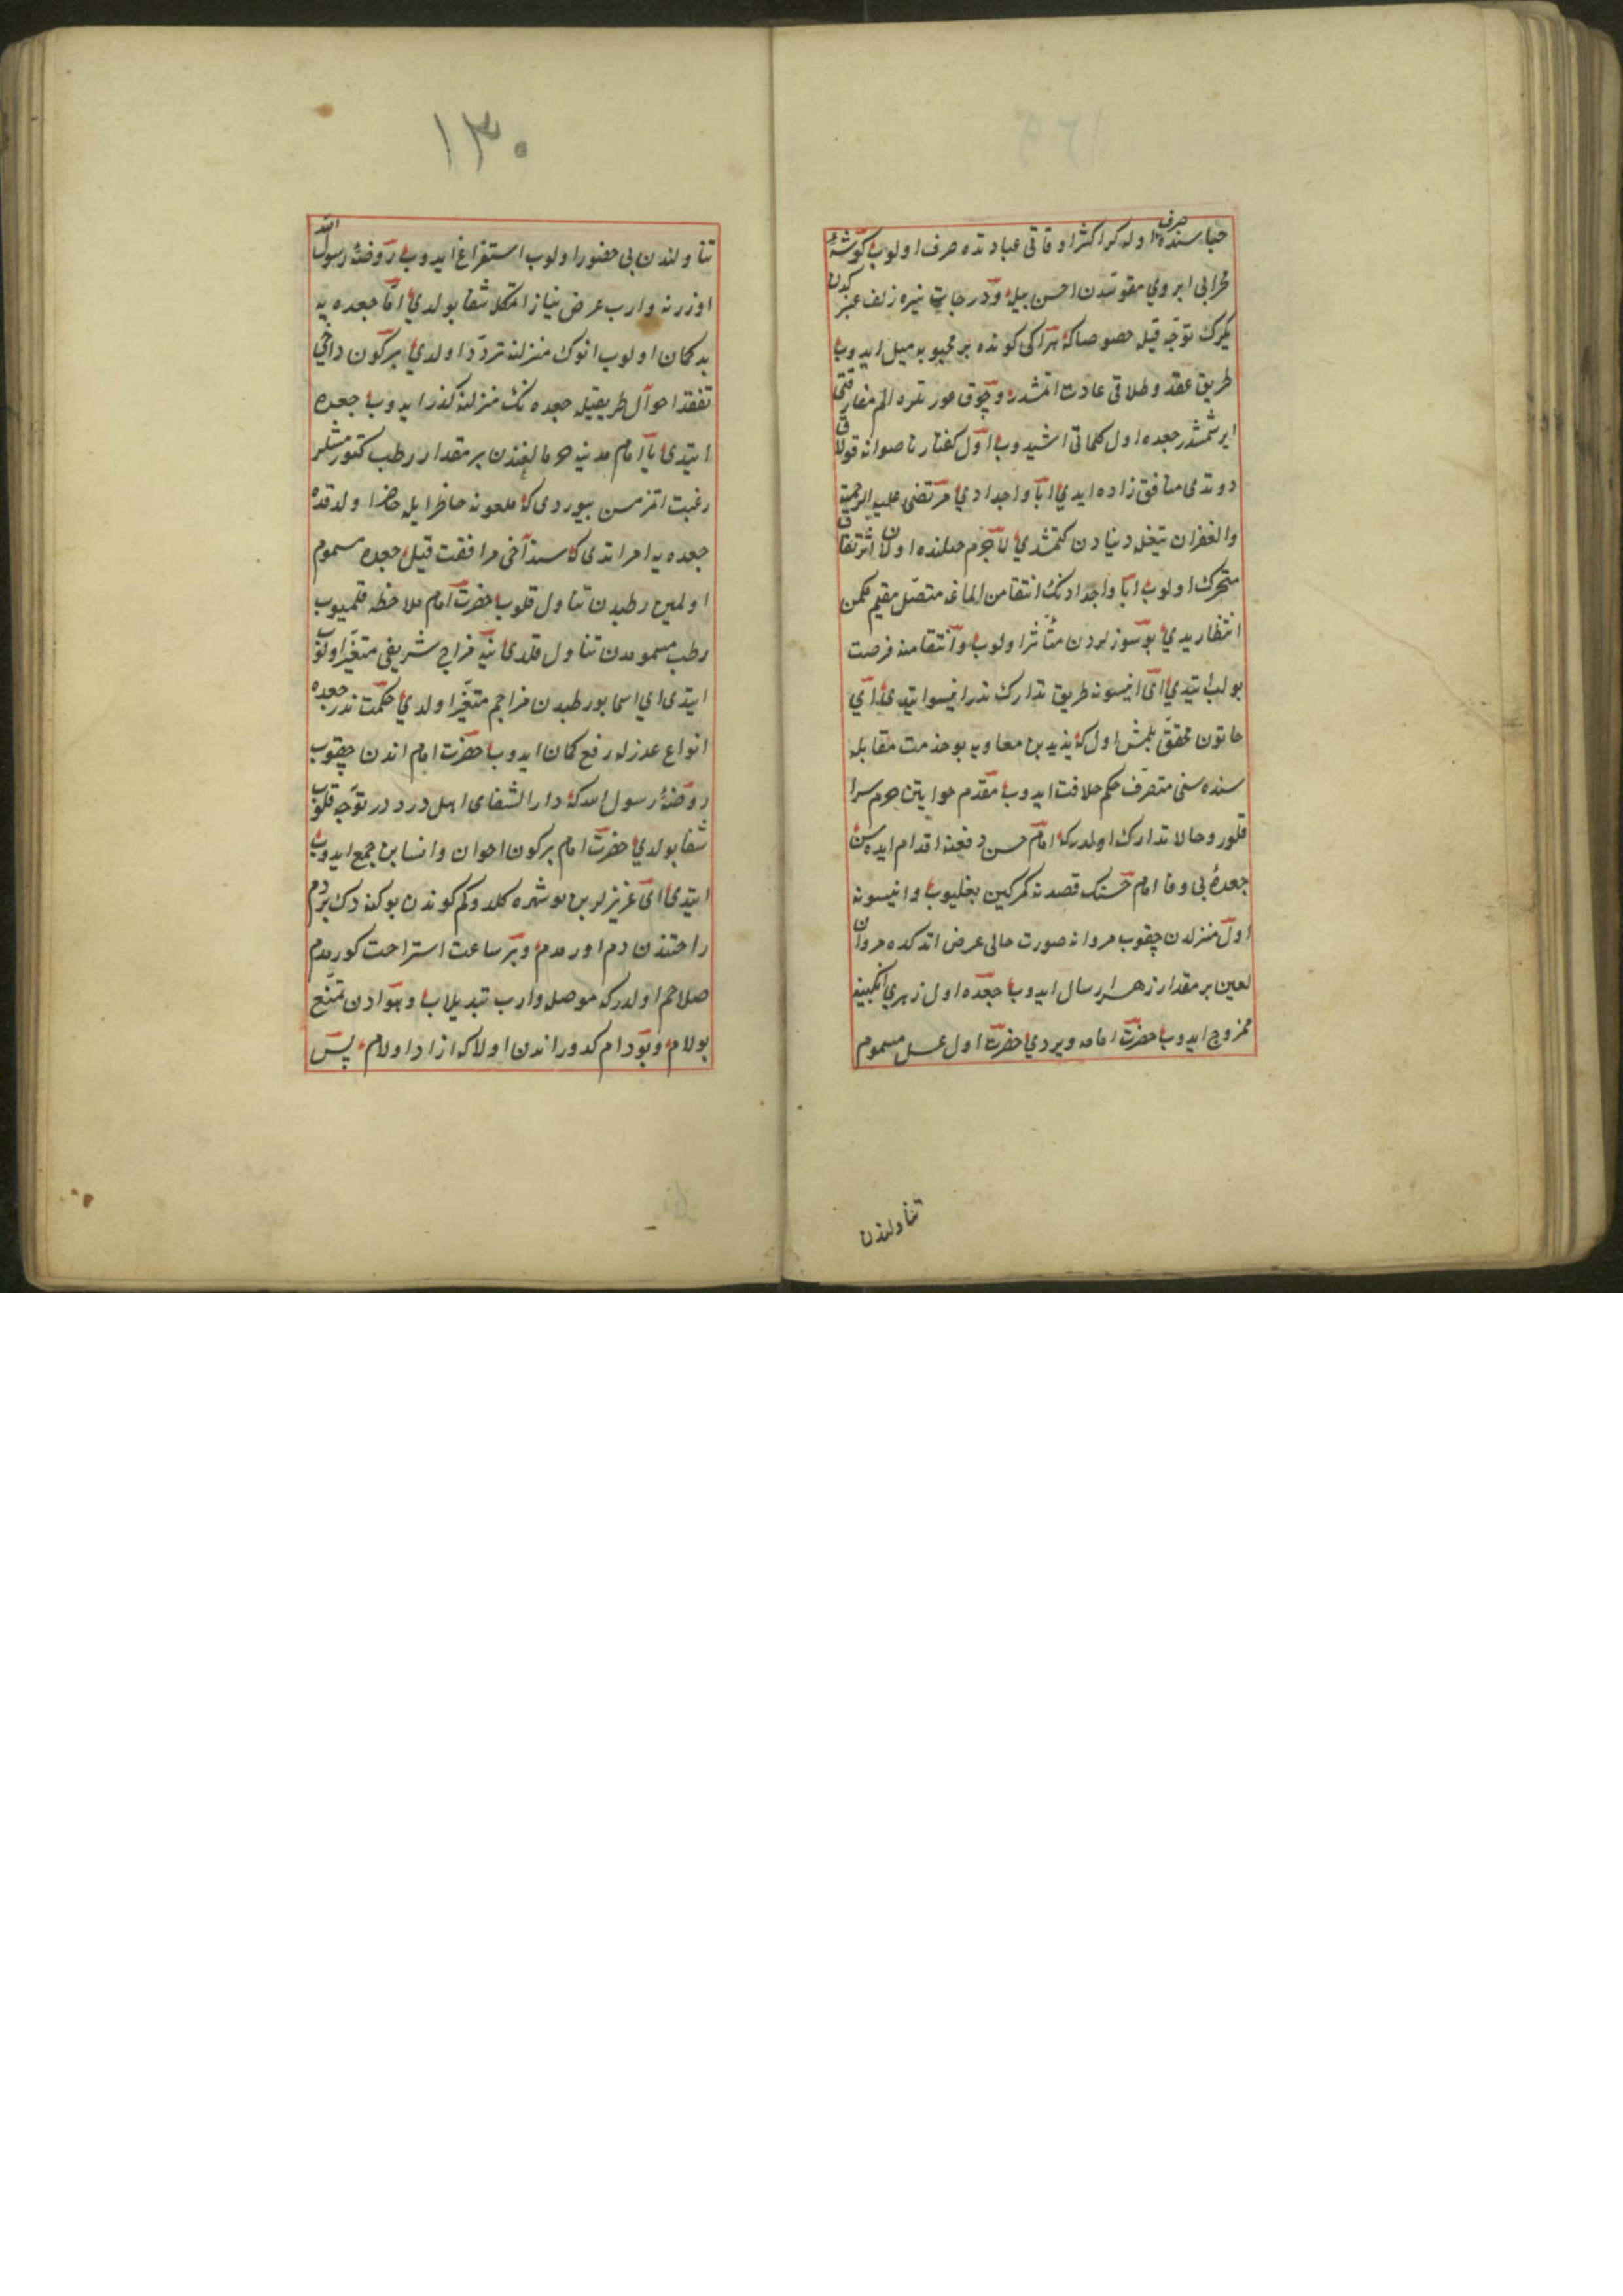 حباسنده صرف اولور كر اكثر اوقاتی عبادتده صرف اولوب كوشهٔ
محرابی ابروی مقوسدن احسن بیله و درجات نیره زلف عنبر
یكرك توجه قیله خصوصا كه هر ایكی كونده بر محبوبه میل ایدوب
طریق عقد و طلاقی عادت اتمشدر و چوق عورتلره الم مفارقتی
ایرشمشدر جعده اول كلماتی اشیدوب اول كفتار ناصوابه قولاق
دوتدی منافق زاده ایدی ابا و اجدادی مرتضی علیه الرحمة
والغفران تیغله دنیادن كتمشدی لاجرم جبلنده اولان اثر نفاق
متحرك اولوب ابا و اجدادنك انتقامن الماغه متصل مقیم مكمن
انتظار یدی بو سوزلردن متأثر اولوب و انتقامنه فرصت
بولب ایتدی ای انیسونه طریق تدارك ندر انیسو ایتدی ای
خاتون محقق بلمش اول كه یزید بن معاویه بو خدمت مقابله
سنده سنی متصرف حكم خلافت ایدوب مقدم خواتین حرم سرا
قلور و حالا تدارك اولدر كه امام حسن دفعنه اقدام ایده سن
جعدهٔ بی وفا امام حسنك قصدنه كمر كین بغلیوب و انیسونه
اول منزلدن چقوب مروانه صورت حالی عرض اتدكده مروان
لعین بر مقدار زهر ارسال ایدوب جعده اول زهری انكبینه
ممزوج ایدوب حضرت امامه ویردی حضرت اول عسل مسموم
تناولندن
١٣٠
تناولندن بی حضور اولوب استفراغ ایدوب روضهٔ رسول الله
اوزرنه وارب عرض نیاز اتمكله شفا بولدی اما جعده یه
بد كمان اولوب انوك منزلنه تردد اولدی بر كون داخی
تفقد احوال طریقیله جعده نك منزلنه كذر ایدوب جعده
ایتدی یا امام مدینه حوالغندن بر مقدار رطب كتورمشلر
رغبت اتمزمسن بیوردی كه ملعونه حاظر ایله حاضر اولدقده
جعده یه امر اتدی كه سن داخی مرافقت قیل جعده مسموم
اولمین رطبدن تناول قلوب حضرت امام ملاحظه قلمیوب
رطب مسمومدن تناول قلدی ینه مزاج شریفی متغیر اولوب
ایتدی ای اسما بو رطبدن مزاجم متغیر اولدی حكمت ندر جعده
انواع عذرله رفع كمان ایدوب حضرت امام اندن چقوب
روضهٔ رسول الله كه دار الشفای اهل درددر توجه قلوب
شفا بولدی حضرت امام بر كون اخوان و انسابن جمع ایدوب
ایتدی ای عزیزلر بن بو شهره كلدوكم كوندن بوكنه دك بر دم
راحتندن دم اورمدم و بر ساعت استراحت كورمدم
صلاحم اولدر كه موصله وارب تبدیل اب و هوادن تمتع
بولام و بو دام كدوراندن اولا كه ازاد اولام پس